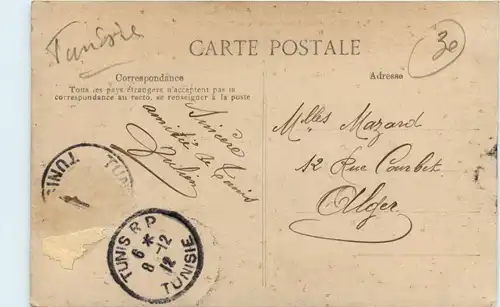 Tunisie
30
CARTE POSTALE
Correspondance
Tous les pays étrangers n'acceptent pas la
correspondance au recto, se renseigner à la poste
Adresse
Sincère
amitié de Tunis
Julien
Melles Mazard
12 Rue Courbet
Alger
TUNIS
TUNIS
TUNIS R.P
6 *
8 -12
12
TUNISIE